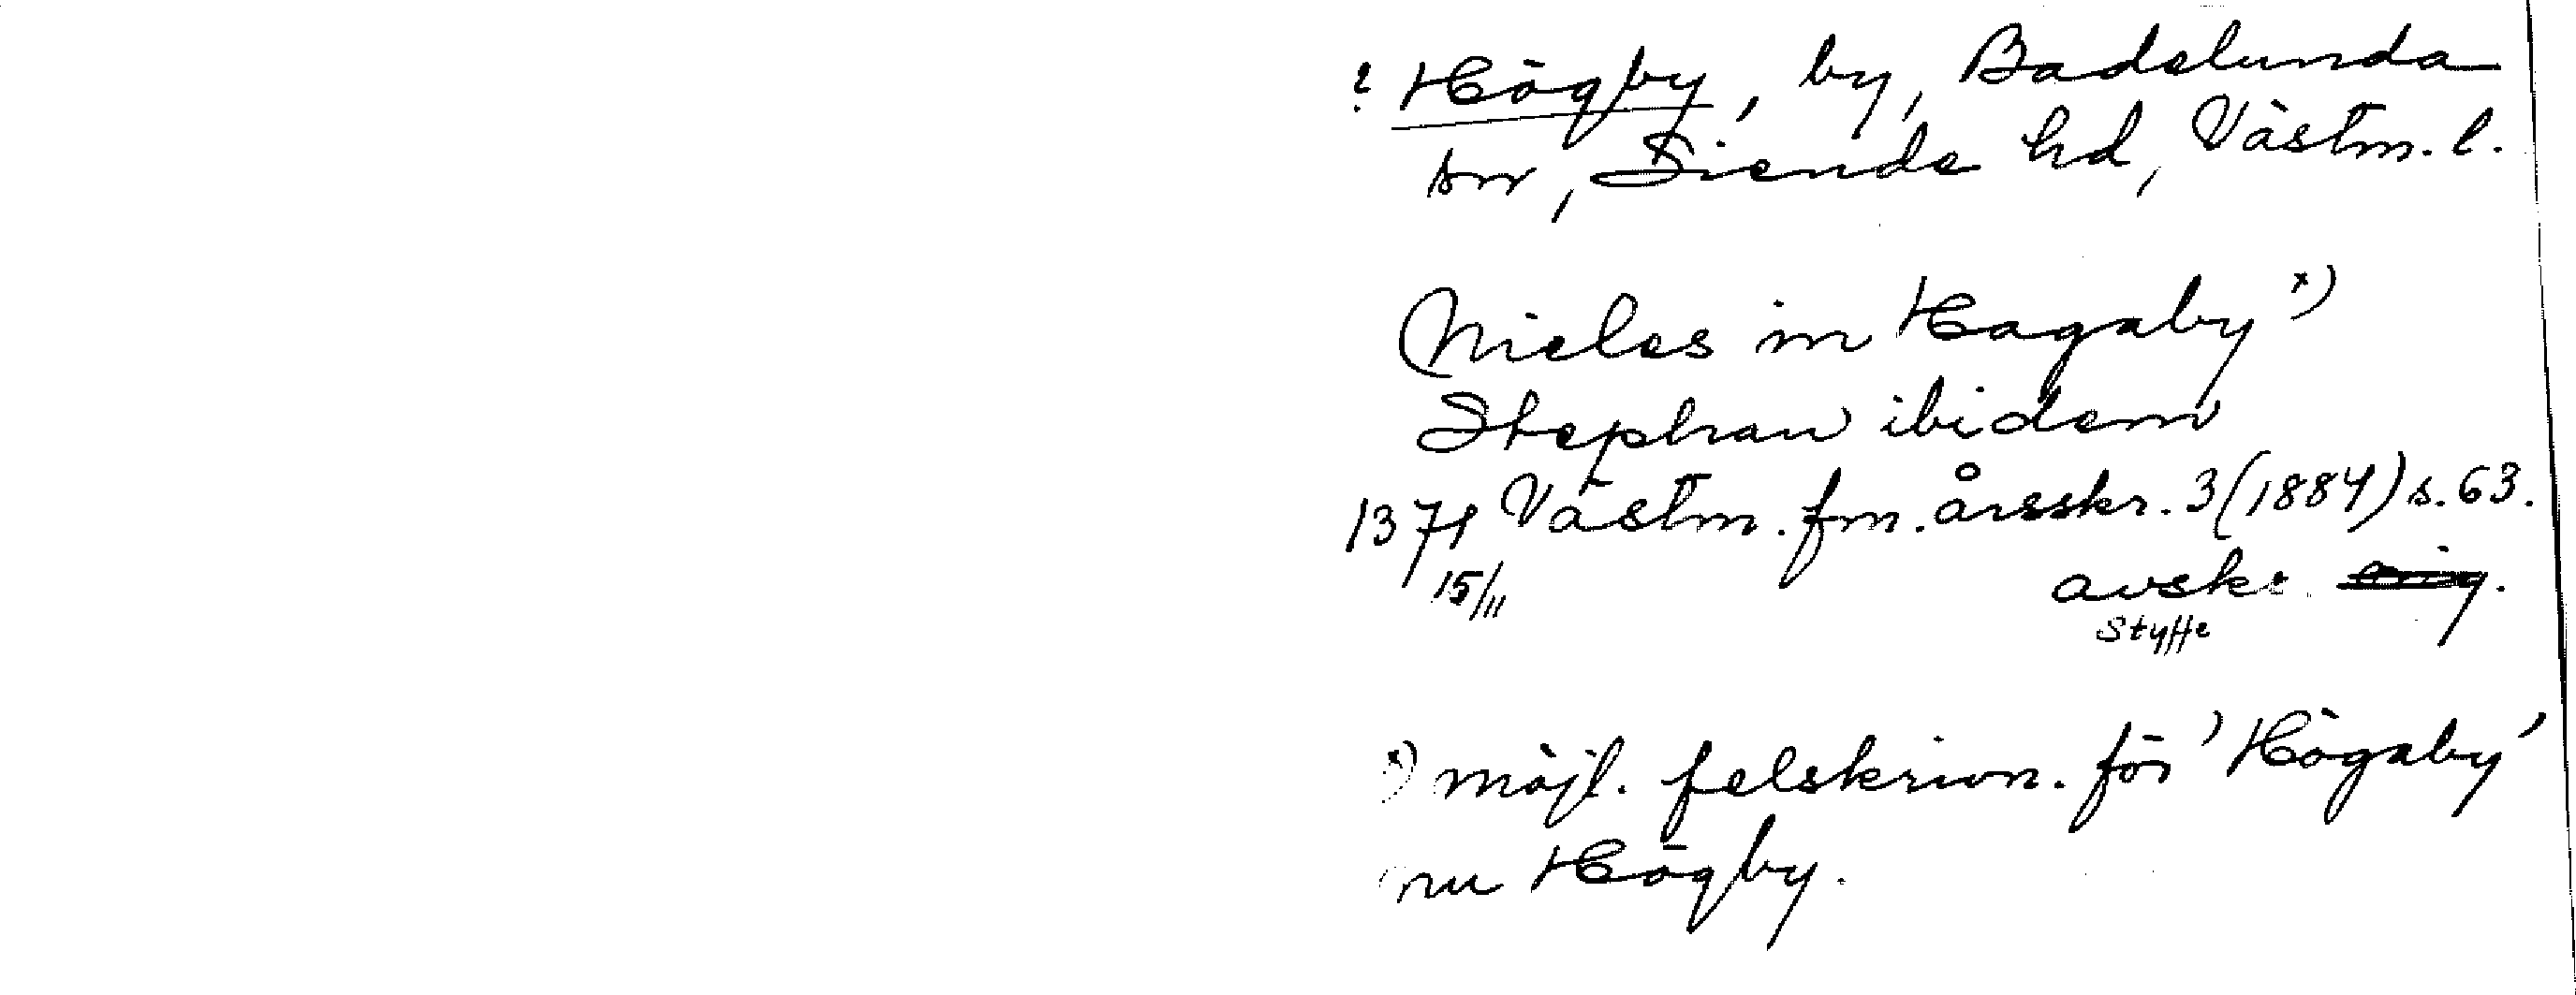 ? Högby, by, Badelunda
sn, Siende hd, Västm. l.
Nicles in Hagaby x)
Stephan ibidem
1371 Västm. fm. årsskr. 3 (1884) s. 63.
15/11 avskr. orig.
Styffe
x) möjl. felskrivn. för 'Högaby'
nu Högby.